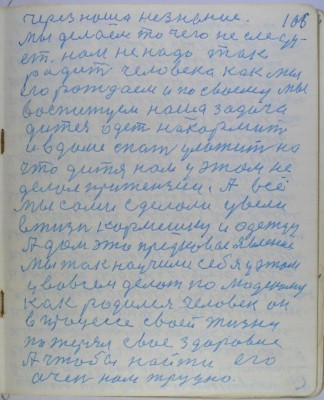 через наше незнание. 106
Мы делаем то чего не следу-
ет. нам не надо так
родит человека как мы
его рождаем и по своему мы
воспитуем наша задача
дитя одет накормит
и вдоме спат уложит на
что дитя нам у этом не
делал притензии, А всё
мы сами сделали увели
в жизн кормешку и одежду
А дом это предковае явление
Мы так научили себя у этом
у вовсем делат по людскому
Как родился человек он
в процессе своей жизни
потерял свое здоровие
А чтобы найти его
очен нам трудно.